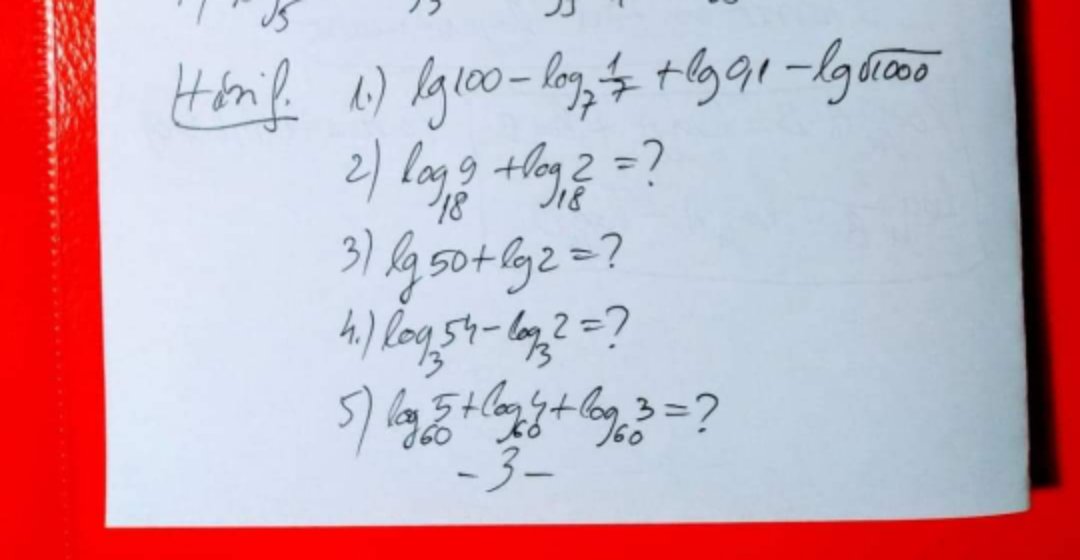 Házif. 1.) lg100 - log₇ 1/7 + lg 0,1 - lg√1000
2) log₁₈ 9 + log₁₈ 2 = ?
3) lg 50 + lg 2 = ?
4.) log₃ 54 - log₃ 2 = ?
5) log₆₀ 5 + log₆₀ 4 + log₆₀ 3 = ?
- 3 -